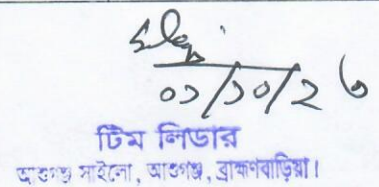 ০১/১০/২৩
টিম লিডার
আশুগঞ্জ সাইলো, আশুগঞ্জ, ব্রাহ্মণবাড়িয়া।